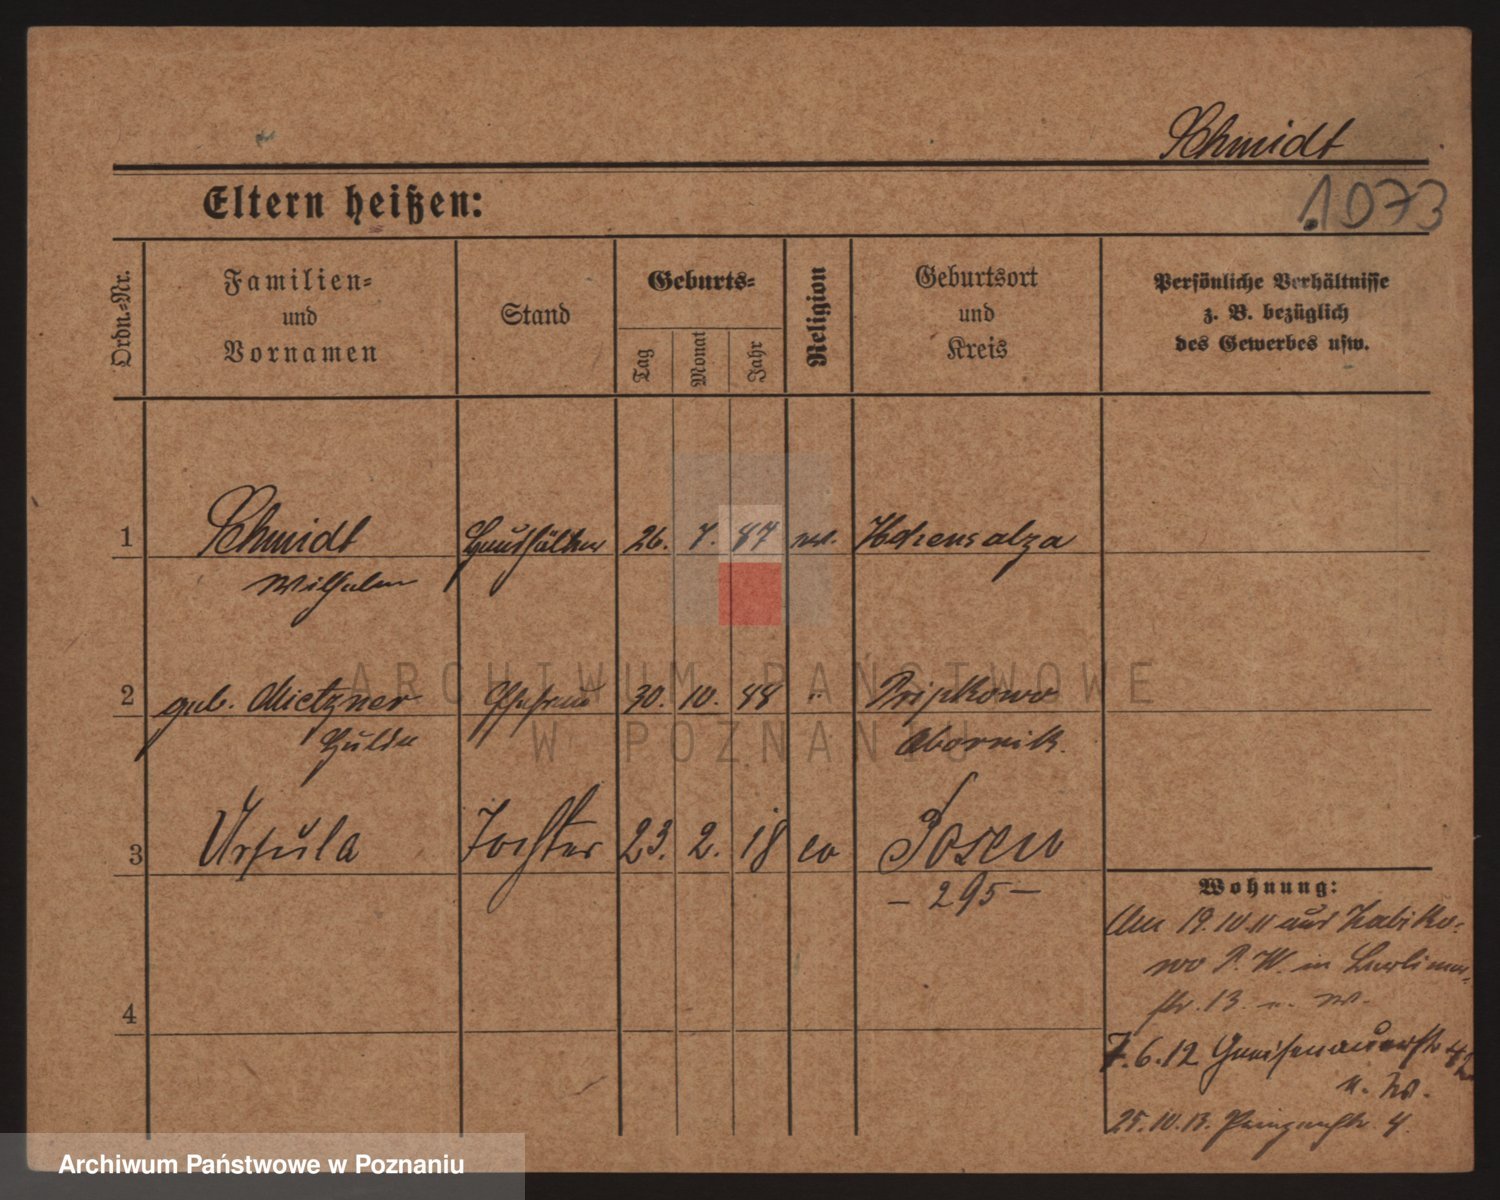 Schmidt
Eltern heißen:
1073
Ordn.-Nr.
Familien-
und
Vornamen
Stand
Geburts-
Tag
Monat
Jahr
Religion
Geburtsort
und
Kreis
Persönliche Verhältnisse
z. B. bezüglich
des Gewerbes usw.
1 Schmidt Haushälter 26. 7. 87 Hohensalza
Wilhelm
2 geb. Mietzner Ehefrau 30. 10. 88 " Pripkowo
Hulda Obornik.
3 Ursula Tochter 23. 2. 18 ev Posen
- 295 -
Wohnung:
Am 19.10.11 aus Zabiko-
wo P. W. in
str. 13. u. W.
4
7.6.12 Gneisenaustr 42
u. W.
25.10.13. 4.
ARCHIWUM PAŃSTWOWE
W POZNANIU
Archiwum Państwowe w Poznaniu